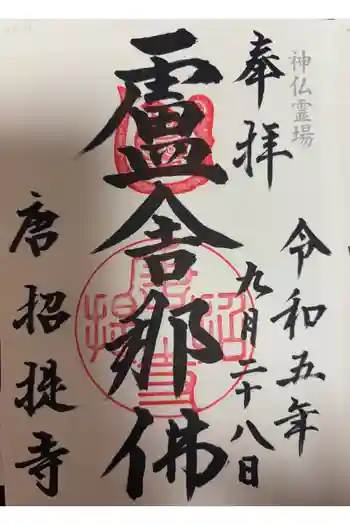 神仏霊場
奉拝
令和五年
九月二十八日
盧舎那佛
唐招提寺